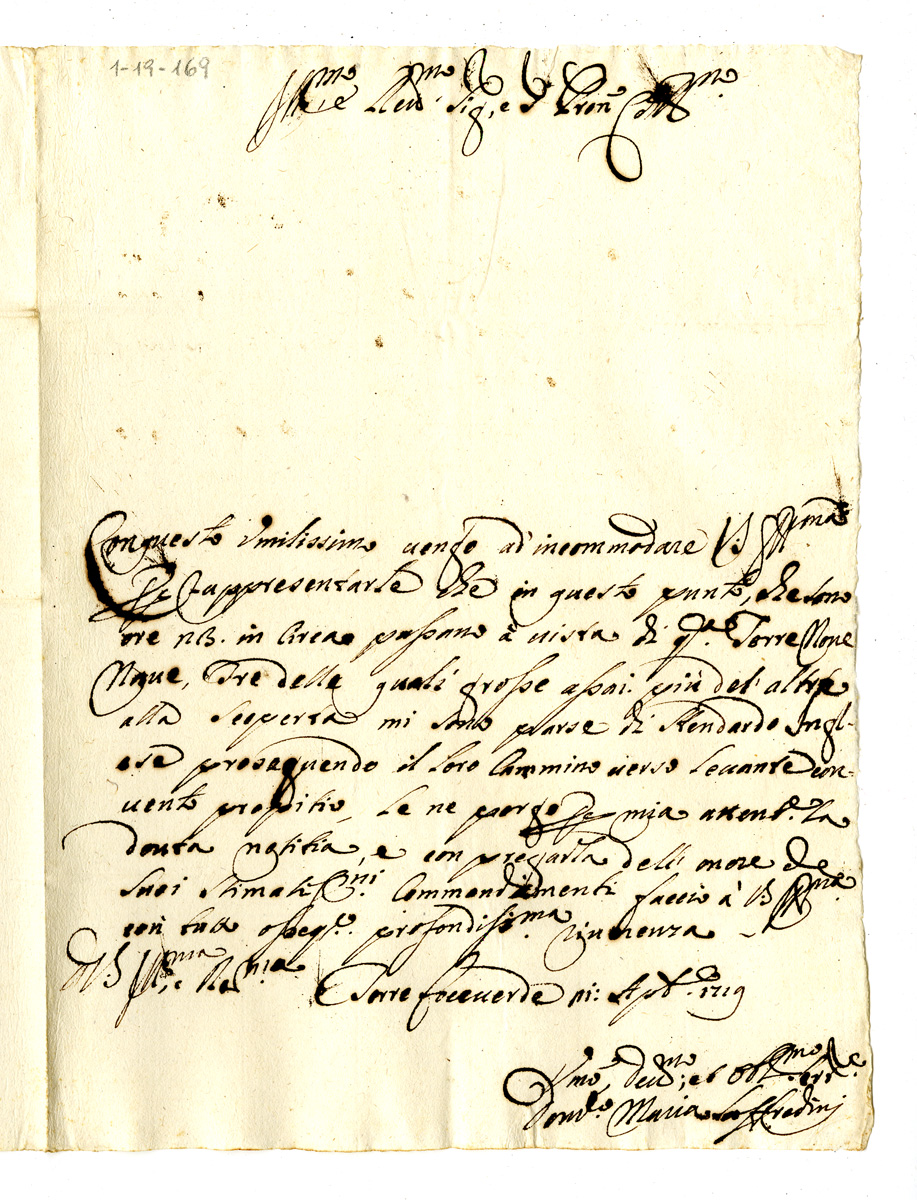 1-19-169
Ill.mo e Rev.mo Sig.e e P.ron Coll.mo
Con questo umilissimo vengo ad incommodare V.S. Ill.ma
rappresentarle che in questo punto, che sono
ore 18. in Circa passano à vista di q.ta Torre Nove
Nave, Tre delle quali grosse assai più del altre
alla scoperta mi sono parse di Stendardo Ingl-
ese proseguendo il loro Cammino verso Levante con
vento propitio, Le ne porgo mia attent.e La
dovuta notitia, e con pregarla delli onore de
Suoi stimatiss.mi Commandamenti faccio à V.S. Ill.ma
con tutto osseq.o profondissi.ma riverenza
D V.S. Ill.ma e Re.ma
Torre foceverde 1719
Um.o Dev.mo et Obl.mo
Maria